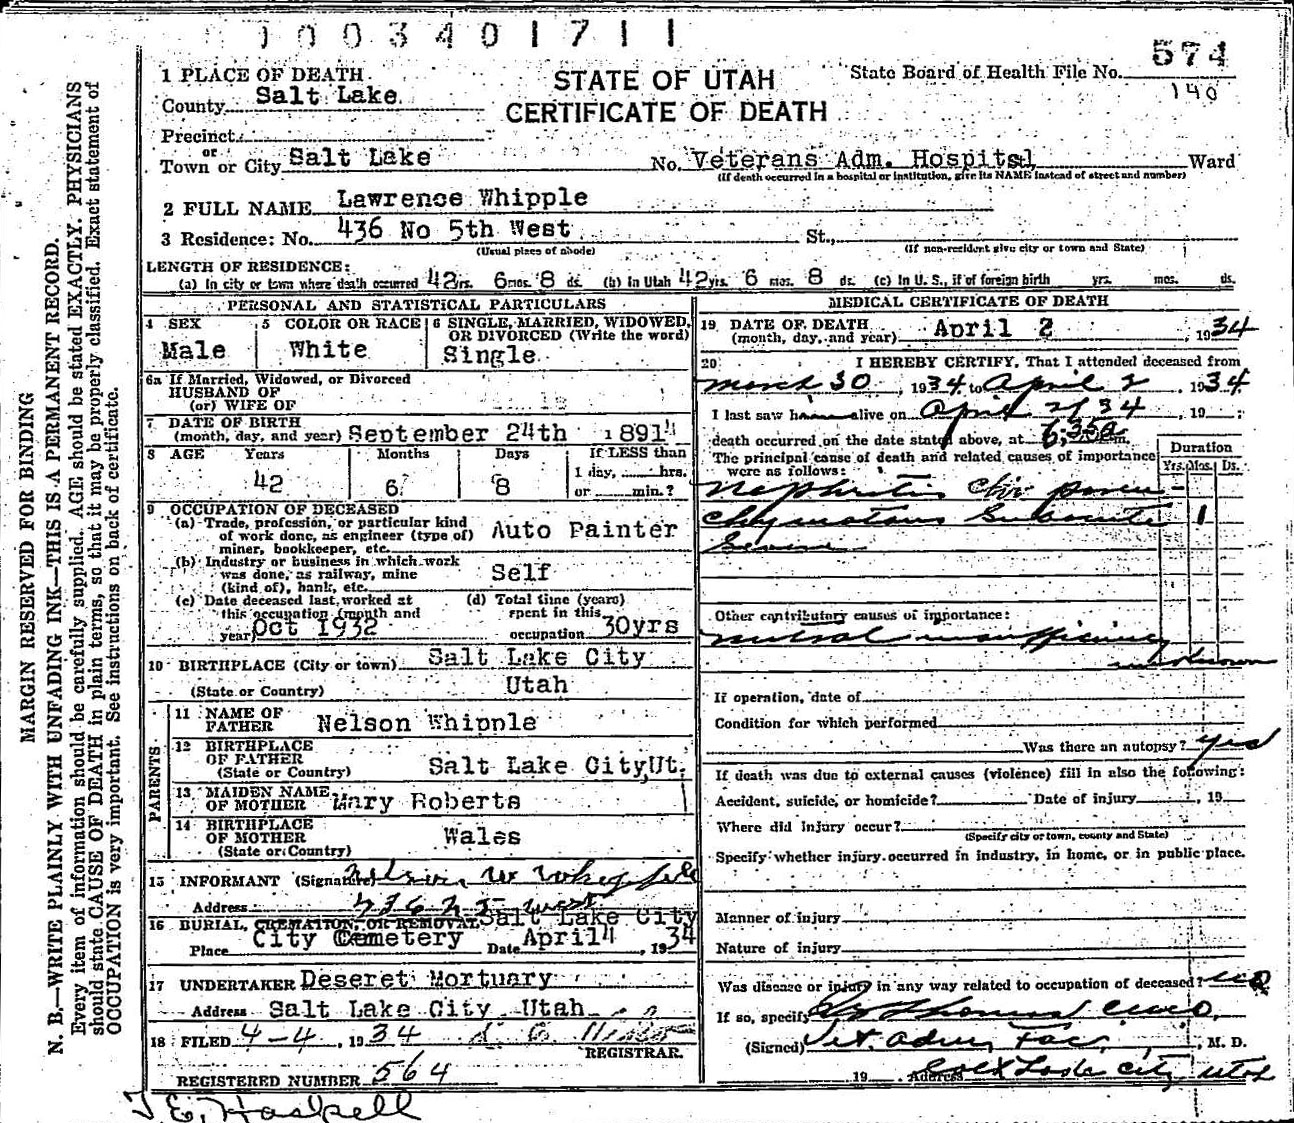 1003401711
574
140
State Board of Health File No.
STATE OF UTAH
CERTIFICATE OF DEATH
1 PLACE OF DEATH
County Salt Lake
Precinct
or
Town or City Salt Lake No. Veterans Adm. Hospital Ward
(If death occurred in a hospital or institution, give its NAME instead of street and number)
2 FULL NAME Lawrence Whipple
3 Residence: No. 436 No 5th West St.,
(Usual place of abode) (If non-resident give city or town and State)
LENGTH OF RESIDENCE:
(a) In city or town where death occurred 42 yrs. 6 mos. 8 ds. (b) In Utah 42 yrs. 6 mos. 8 ds. (c) In U. S., if of foreign birth yrs. mos. ds.
PERSONAL AND STATISTICAL PARTICULARS
4 SEX
Male
5 COLOR OR RACE
White
6 SINGLE, MARRIED, WIDOWED,
OR DIVORCED (Write the word)
Single
6a If Married, Widowed, or Divorced
HUSBAND OF
(or) WIFE OF
7 DATE OF BIRTH
(month, day, and year) September 24th 1891
8 AGE Years Months Days If LESS than
1 day, hrs.
or min.?
42 6 8
9 OCCUPATION OF DECEASED
(a) Trade, profession, or particular kind
of work done, as engineer (type of)
miner, bookkeeper, etc. Auto Painter
(b) Industry or business in which work
was done, as railway, mine
(kind of), bank, etc. Self
(c) Date deceased last worked at
this occupation (month and
year) Oct 1932
(d) Total time (years)
spent in this
occupation 30yrs
10 BIRTHPLACE (City or town) Salt Lake City
(State or Country) Utah
PARENTS
11 NAME OF
FATHER Nelson Whipple
12 BIRTHPLACE
OF FATHER
(State or Country) Salt Lake City, Ut.
13 MAIDEN NAME
OF MOTHER Mary Roberts
14 BIRTHPLACE
OF MOTHER
(State or Country) Wales
15 INFORMANT (Signature) Nelson W Whipple
Address West
16 BURIAL, CREMATION, OR REMOVAL Salt Lake City
Place City Cemetery Date April 4, 1934
17 UNDERTAKER Deseret Mortuary
Address Salt Lake City Utah
18 FILED 4-4, 1934
REGISTRAR.
REGISTERED NUMBER 564
T. E. Haskell
MEDICAL CERTIFICATE OF DEATH
19 DATE OF DEATH
(month, day, and year) April 2 1934
20 I HEREBY CERTIFY, That I attended deceased from
March 30, 1934 to April 2, 1934
I last saw him alive on April 2/34, 19
death occurred on the date stated above, at 6:35a m.
The principal cause of death and related causes of importance
were as follows:
Duration
Yrs. Mos. Ds.
Nephritis Chr paren-
chymatous Subacute 1
Severe
Other contributory causes of importance:
mitral insufficiency
unknown
If operation, date of
Condition for which performed
Was there an autopsy? yes
If death was due to external causes (violence) fill in also the following:
Accident, suicide, or homicide? Date of injury, 19
Where did injury occur?
(Specify city or town, county and State)
Specify whether injury occurred in industry, in home, or in public place.
Manner of injury
Nature of injury
Was disease or injury in any way related to occupation of deceased? no
If so, specify
(Signed) Vet. Adm. Fac., M. D.
19 Address Salt Lake City Utah
MARGIN RESERVED FOR BINDING
N. B.—WRITE PLAINLY WITH UNFADING INK—THIS IS A PERMANENT RECORD.
Every item of information should be carefully supplied. AGE should be stated EXACTLY. PHYSICIANS
should state CAUSE OF DEATH in plain terms, so that it may be properly classified. Exact statement of
OCCUPATION is very important. See instructions on back of certificate.